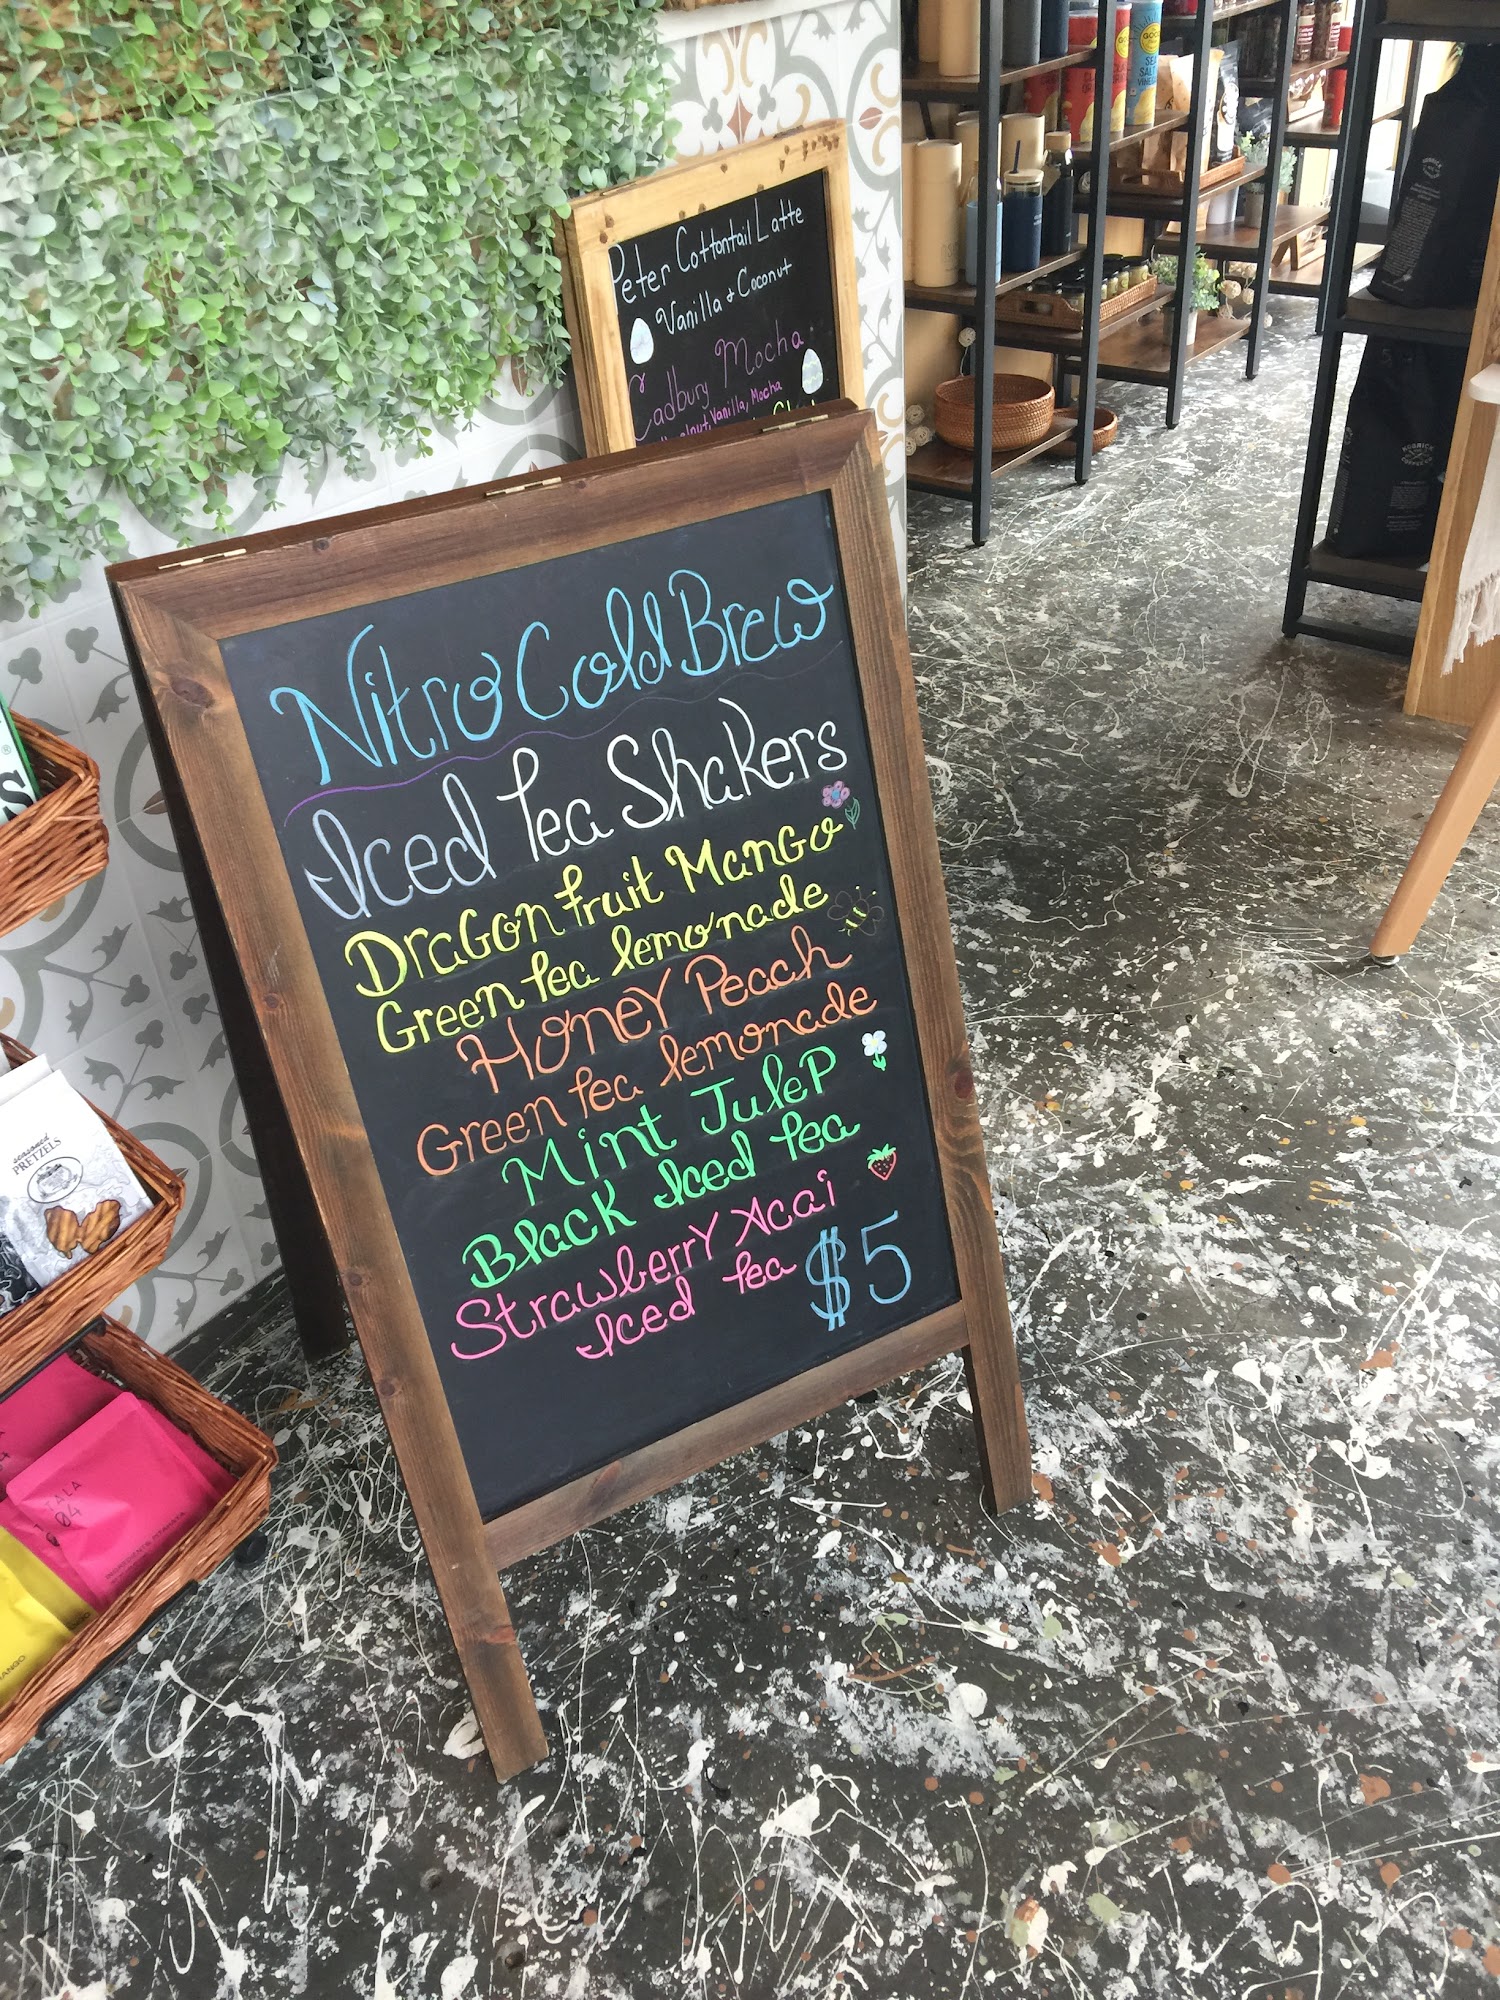 Peter Cottontail Latte
Vanilla & Coconut
Cadbury Mocha
Vanilla, Mocha
Nitro Cold Brew
Iced Tea Shakers
Dragon fruit Mango
Green tea lemonade
Honey Peach
Green tea lemonade
Mint Julep
Black Iced tea
Strawberry Acai
Iced tea $5
seasoned
PRETZELS
SEA
SALT